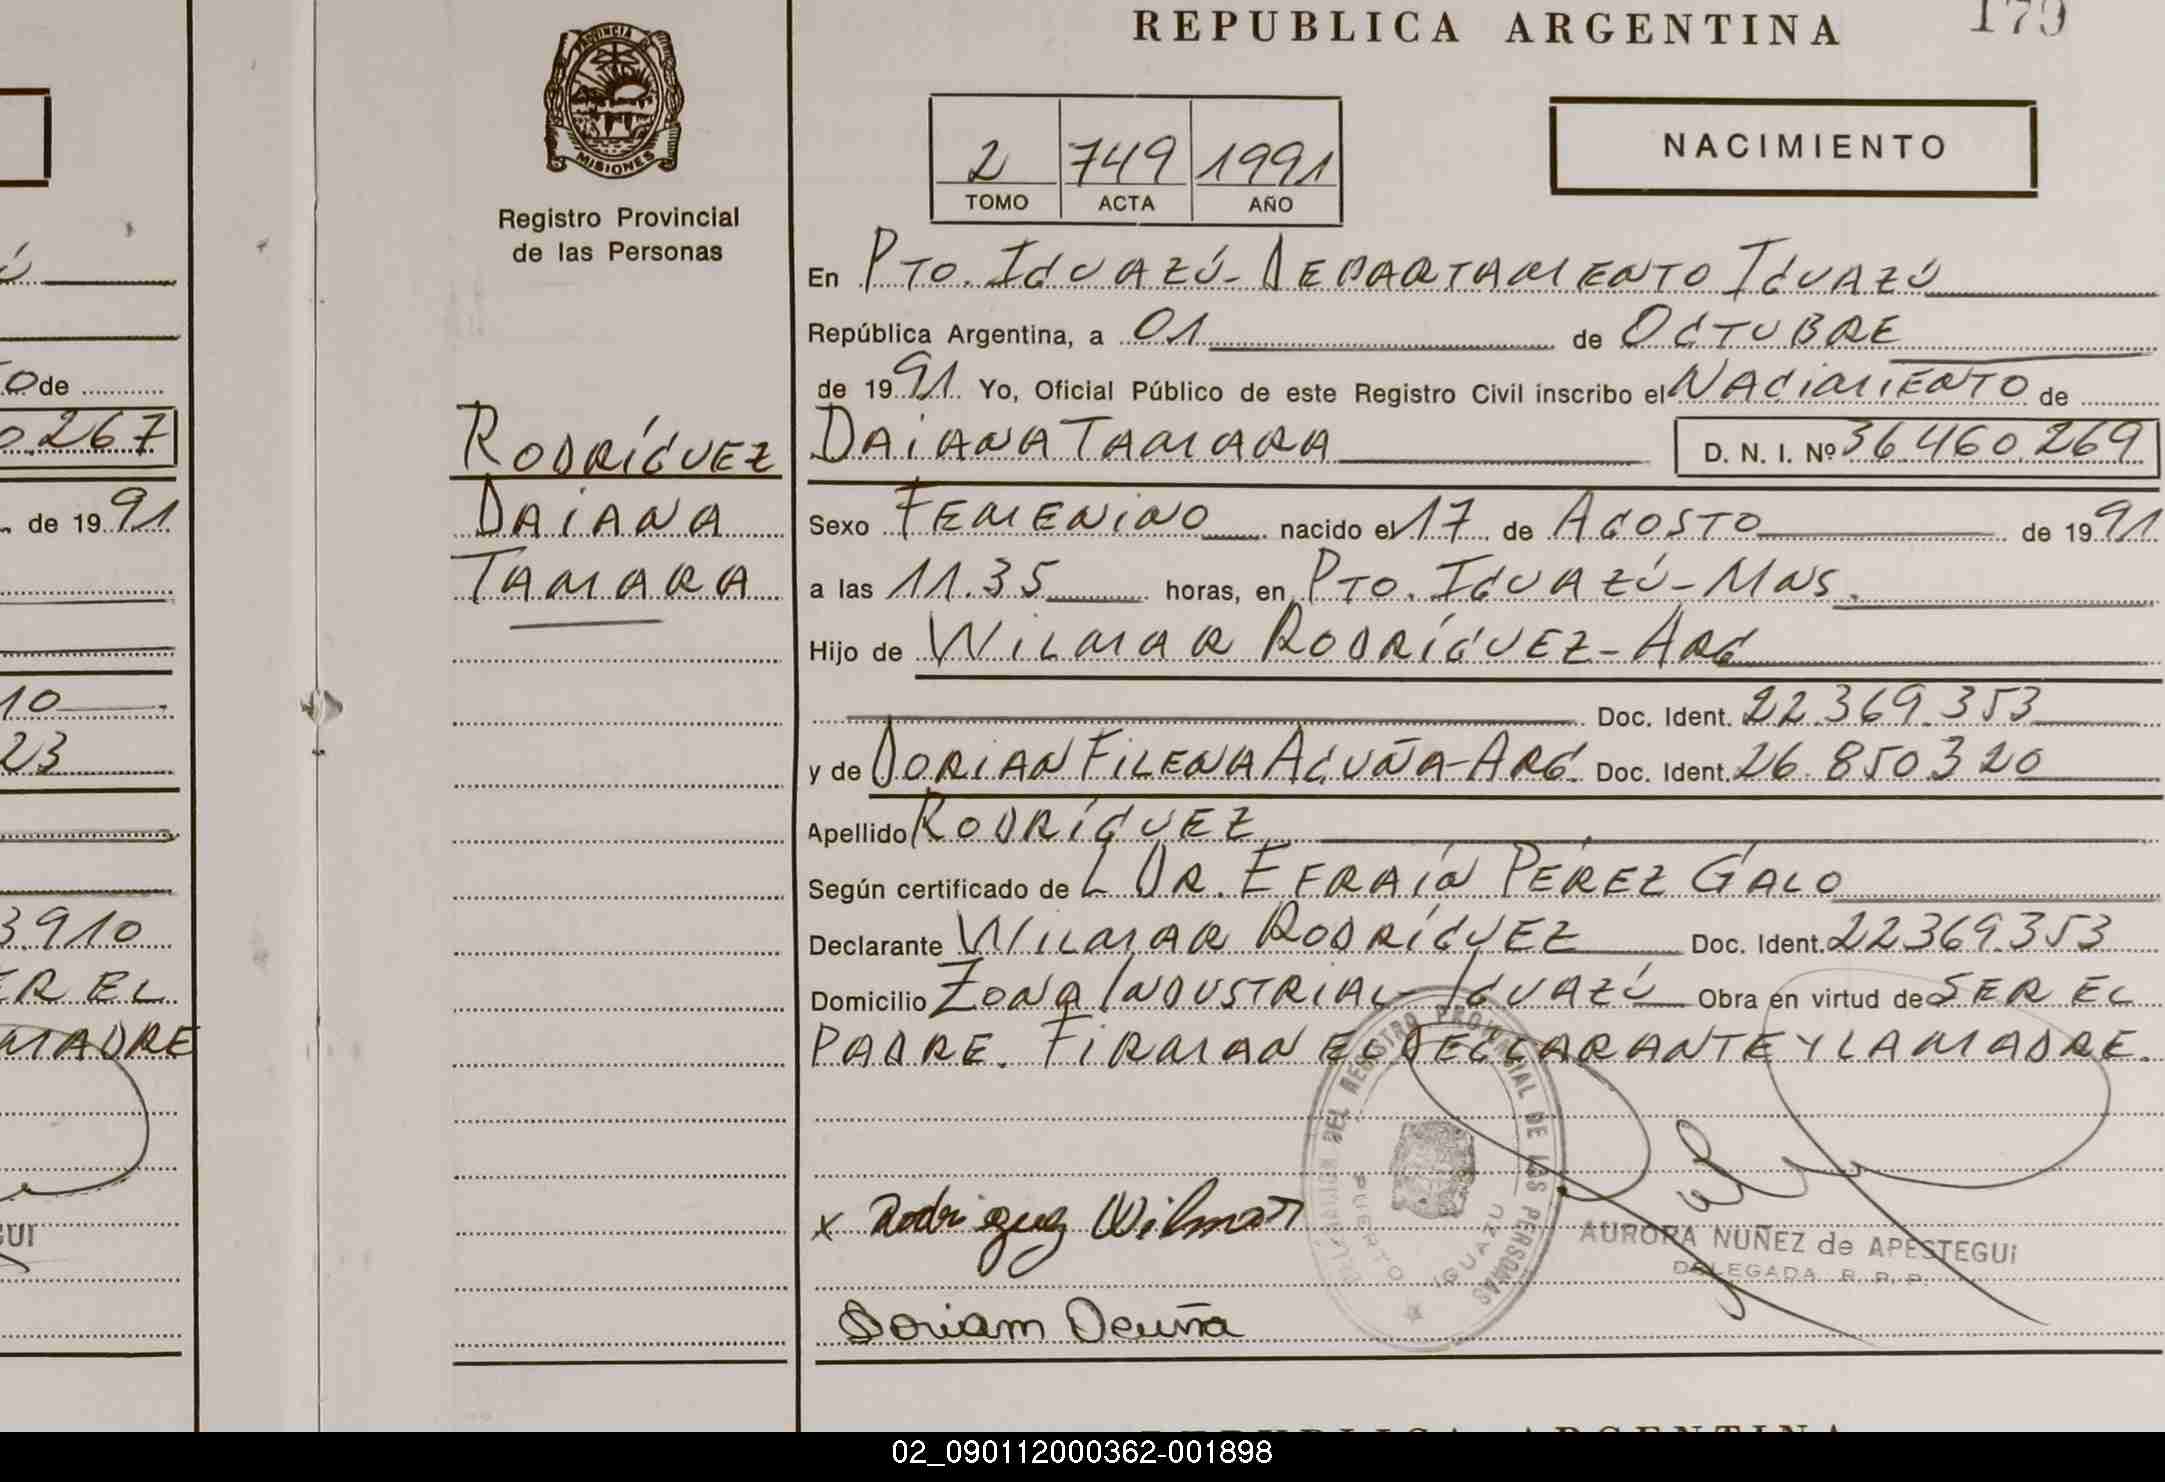 REPUBLICA ARGENTINA
179
PROVINCIA DE
MISIONES
Registro Provincial
de las Personas
2 749 1991
TOMO ACTA AÑO
NACIMIENTO
En PTO. IGUAZÚ - DEPARTAMENTO IGUAZÚ
República Argentina, a 01 de OCTUBRE
de 1991 Yo, Oficial Público de este Registro Civil inscribo el NACIMIENTO de
DAIANA TAMARA D. N. I. Nº 36.460.269
RODRÍGUEZ
DAIANA
TAMARA
Sexo FEMENINO nacido el 17 de AGOSTO de 1991
a las 11.35 horas, en PTO. IGUAZÚ - MNS.
Hijo de WILMAR RODRÍGUEZ - ARG
Doc. Ident. 22.369.353
y de DORIAN FILENA ACUÑA - ARG. Doc. Ident. 26.850320
Apellido RODRÍGUEZ
Según certificado de L DR. EFRAÍN PÉREZ GALO
Declarante WILMAR RODRÍGUEZ Doc. Ident. 22369.353
Domicilio ZONA INDUSTRIAL - IGUAZÚ Obra en virtud de SER EL
PADRE. FIRMAN EL DECLARANTE Y LA MADRE.
DEL REGISTRO PROVINCIAL DE LAS PERSONAS
PUERTO IGUAZU
x Rodriguez Wilmar
AURORA NUÑEZ de APESTEGUI
DELEGADA R. R. P.
Doriam Acuña
ú
O de
0.267
de 1991
10
23
3910
ER EL
MADRE
GUI
REPUBLICA ARGENTINA
02_090112000362-001898